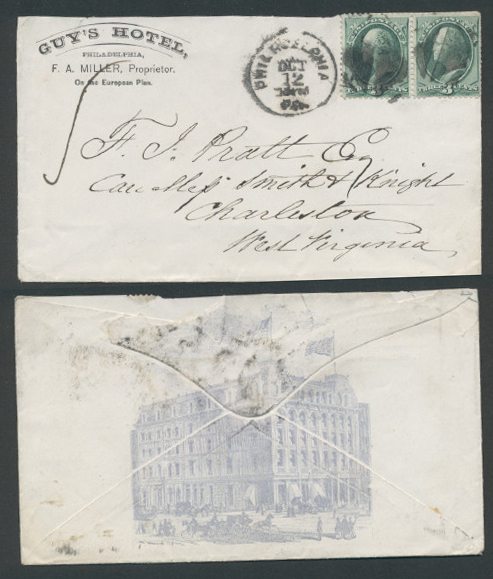 GUY'S HOTEL,
PHILADELPHIA,
F. A. MILLER, Proprietor.
On the European Plan.
PHILADELPHIA
OCT
12
PA.
THREE CENTS
3 THREE CENTS
F. J. Pratt Esq
Care Mess Smith & Knight
Charleston
West Virginia